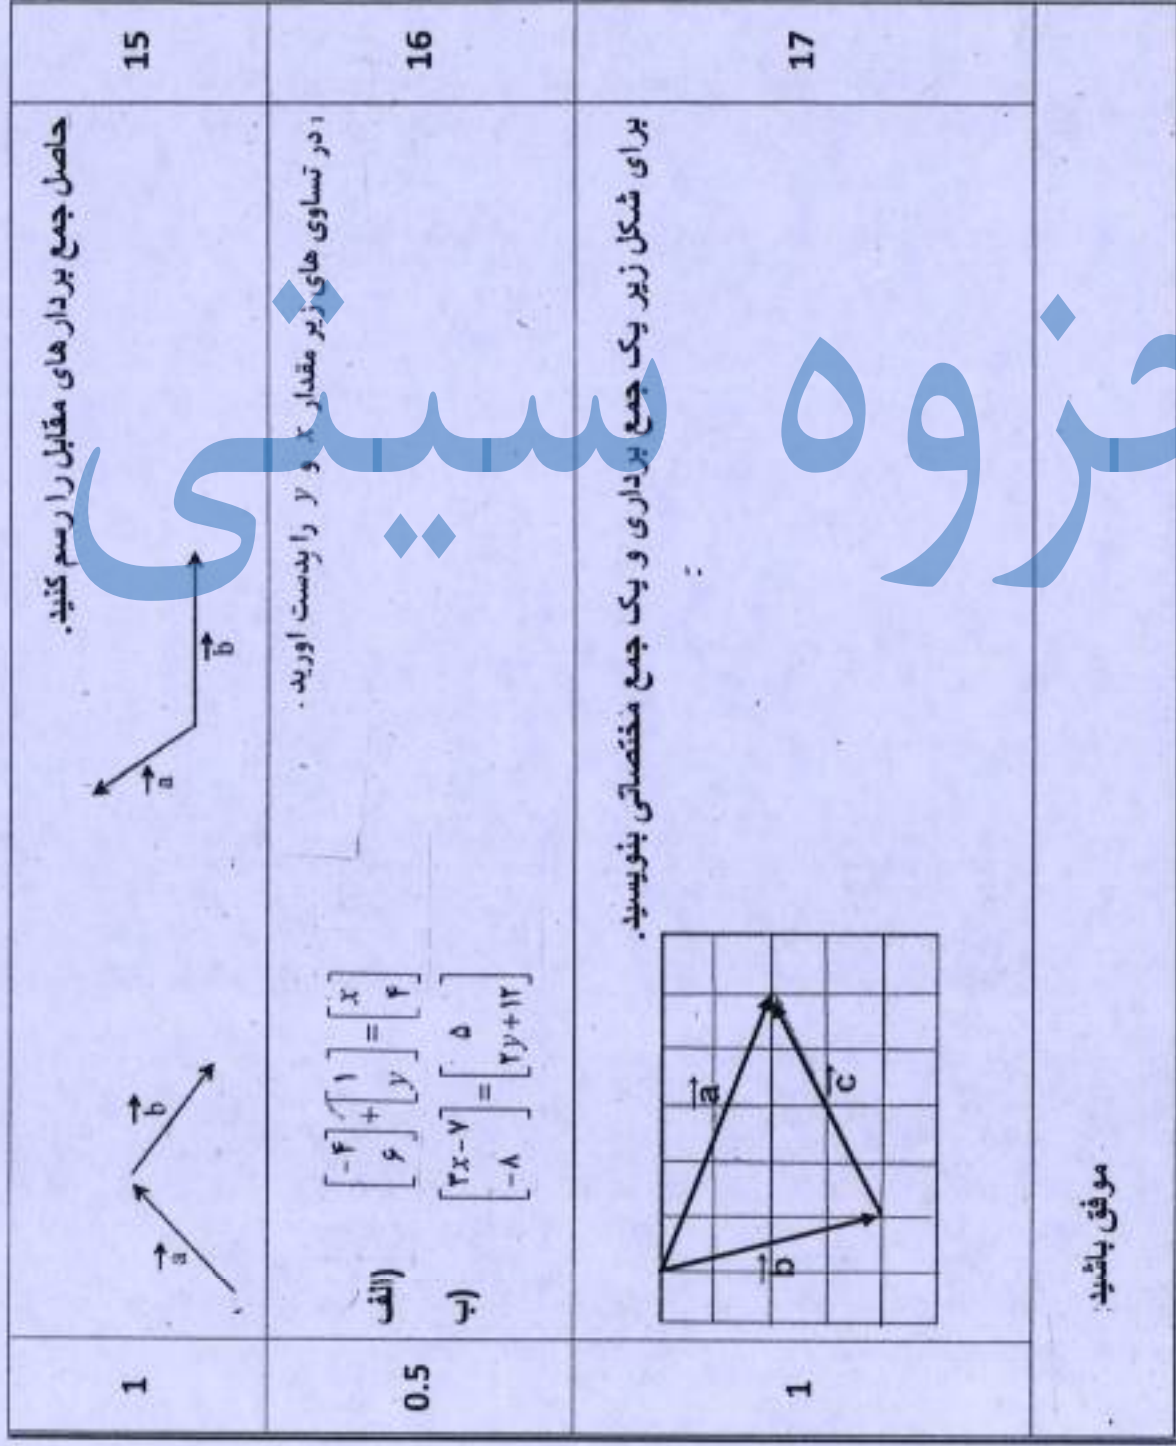 15
حاصل جمع بردار های مقابل را رسم کنید.
a b
a b
1
16
در تساوی های زیر مقدار x و y را بدست اورید .
الف) [-۴ ۶] + [۱ y] = [x ۴]
ب) [۳x-۷ -۸] = [۵ ۲y+۱۲]
0.5
17
برای شکل زیر یک جمع برداری و یک جمع مختصاتی بنویسید.
a
b
c
1
موفق باشید.
جزوه سیتی